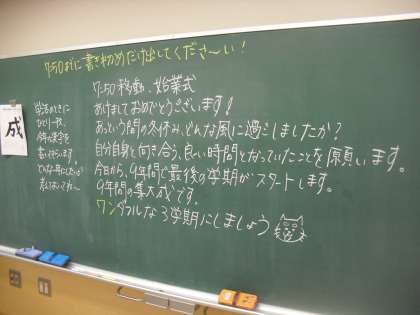 7:50までに書き初めだけ出してくださーい！
7:50移動、始業式
あけましておめでとうございます！
あっという間の冬休み、どんな風に過ごしましたか？
自分自身と向き合う、良い時間となっていたことを願います。
今日から、9年間で最後の学期がスタートします。
9年間の集大成です。
ワンダフルな3学期にしましょう
ひとり一枚、
書いてもらいます。
成